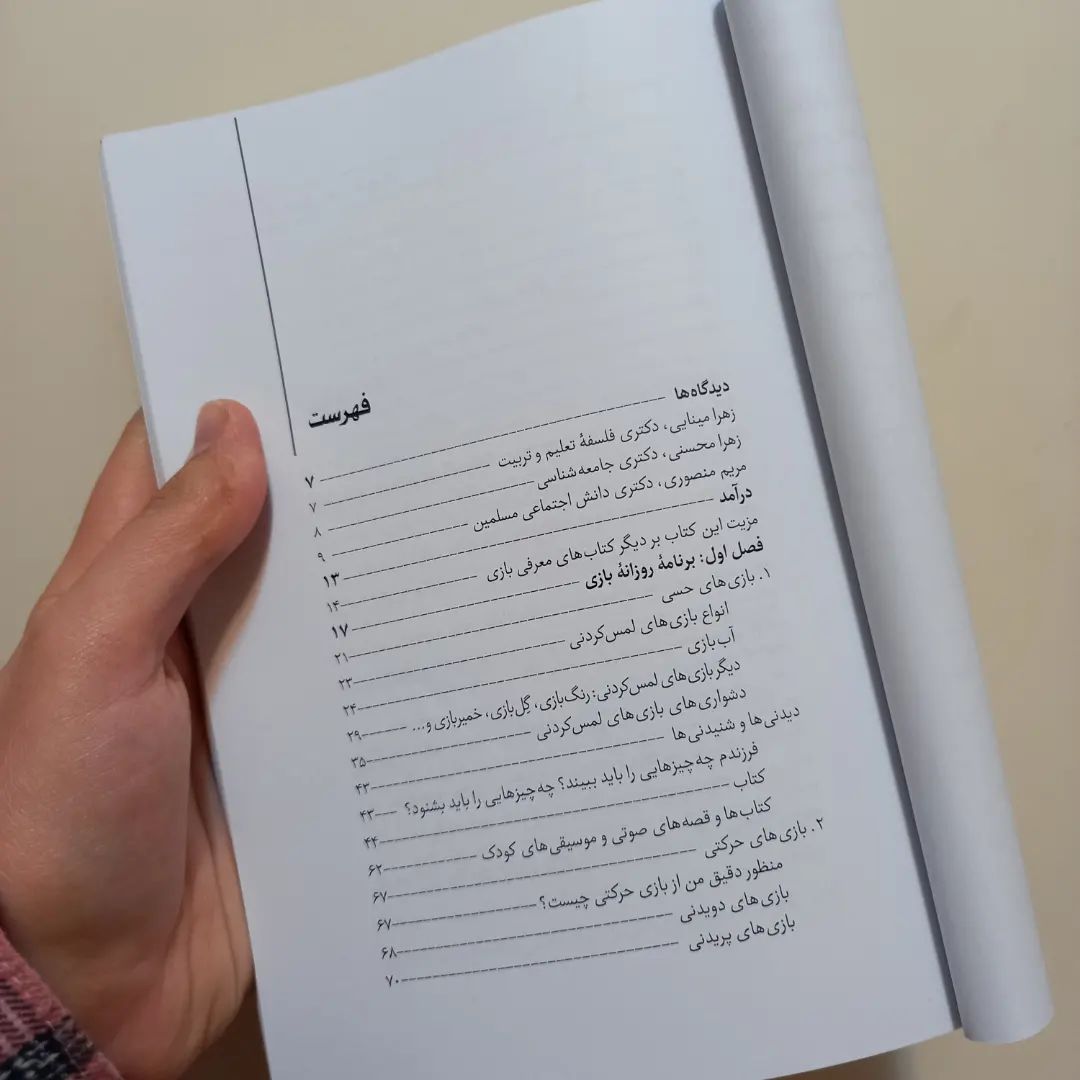 فهرست
دیدگاه‌ها ۷
زهرا مینایی، دکتری فلسفهٔ تعلیم و تربیت ۷
زهرا محسنی، دکتری جامعه‌شناسی ۸
مریم منصوری، دکتری دانش اجتماعی مسلمین ۹
درآمد ۱۳
مزیت این کتاب بر دیگر کتاب‌های معرفی بازی ۱۴
فصل اول: برنامهٔ روزانهٔ بازی ۱۷
۱. بازی‌های حسی ۲۱
انواع بازی‌های لمس‌کردنی ۲۳
آب‌بازی ۲۴
دیگر بازی‌های لمس‌کردنی: رنگ‌بازی، گِل‌بازی، خمیربازی و... ۲۹
دشواری‌های بازی‌های لمس‌کردنی ۳۵
دیدنی‌ها و شنیدنی‌ها ۴۳
فرزندم چه‌چیزهایی را باید ببیند؟ چه‌چیزهایی را باید بشنود؟ ۴۳
کتاب ۴۴
کتاب‌ها و قصه‌های صوتی و موسیقی‌های کودک ۶۲
۲. بازی‌های حرکتی ۶۷
منظور دقیق من از بازی حرکتی چیست؟ ۶۷
بازی‌های دویدنی ۶۸
بازی‌های پریدنی ۷۰